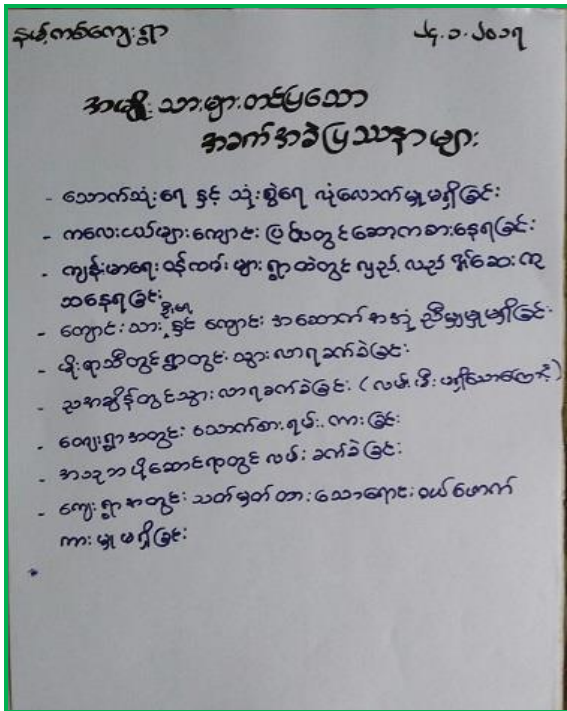 နမ့်ကစ်ကျေးရွာ ၂၄.၁.၂၀၁၇
အမျိုးသားများတင်ပြသော
အခက်အခဲပြဿနာများ
- သောက်သုံးရေ နှင့် သုံးစွဲရေ လုံလောက်မှုမရှိခြင်း
- ကလေးငယ်များကျောင်း ပြင်ပတွင်ဆော့ကစားနေရခြင်း
- ကျန်းမာရေး ဝန်ထမ်း များ ရွာထဲတွင် လှည့်လည် ဆေးကု
သနေရခြင်း
- ကျောင်းသားဦးရေ နှင့် ကျောင်း အဆောက်အအုံ ညီမျှမှုမရှိခြင်း
- မိုးရာသီတွင်ရွာတွင်း သွားလာရခက်ခဲခြင်း
- ညအချိန်တွင်သွားလာရခက်ခဲခြင်း (လမ်းမီးမရှိသောကြောင့်)
- ကျေးရွာအတွင်း သောက်စားရမ်းကားခြင်း
- အသုဘပို့ဆောင်ရာတွင် လမ်းခက်ခဲခြင်း
- ကျေးရွာအတွင်း သတ်မှတ်ထားသောရောင်းဝယ်ဖောက်
ကားမှုမရှိခြင်း